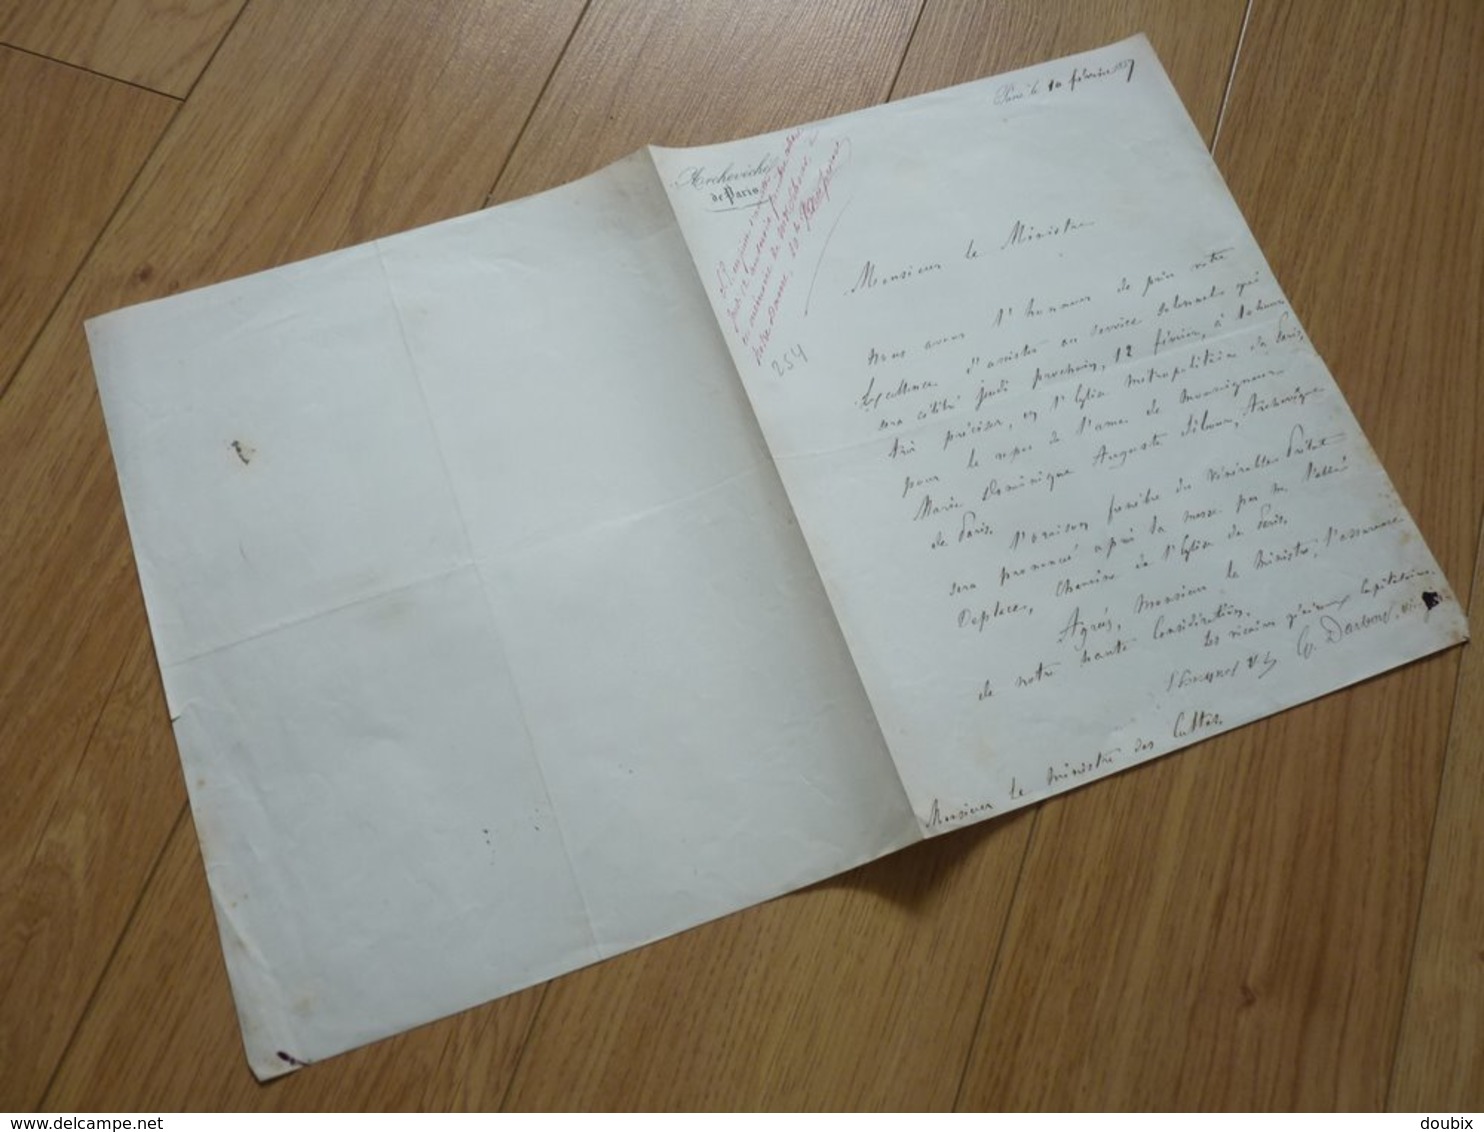 Archevêché
de Paris
Paris le 10 février 1857
254
Monsieur le Ministre
Nous avons l'honneur de prier votre
Excellence d'assister au service solennel qui
sera célébré jeudi prochain, 12 février, à 10 heures
très précises, en l'Eglise métropolitaine de Paris,
pour le repos de l'ame de Monseigneur
Marie Dominique Auguste Sibour, Archevêque
de Paris.
L'oraison funèbre du vénérable Prélat
sera prononcé après la messe par M. l'abbé
Deplace, chanoine de l'Eglise de Paris.
Agréez, Monsieur le Ministre, l'assurance
de notre haute considération.
Les vicaires généraux Capitulaires.
G. Darboy,
Monsieur le Ministre des Cultes.
delcampe.net
doubix